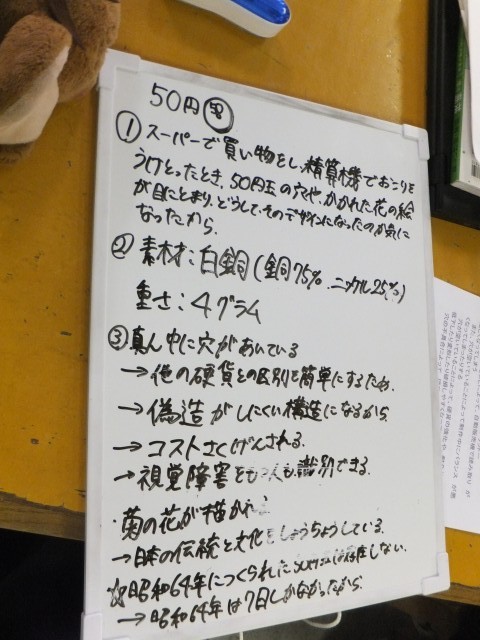 50円㊚
① スーパーで買い物をし、精算機でおこりを
うけとったとき、50円玉の穴や、かかれた花の絵
が目にとまり、どうして、そのデザインになったのか気に
なったから。
② 素材：白銅(銅75%、ニッケル25%)
重さ：4グラム
③ 真ん中に穴があいている
→他の硬貨との区別を簡単にするため。
→偽造がしにくい構造になるから。
→コストさくげんされる。
→視覚障害をもつ人も識別できる。
・菊の花が描かれ
→日本の伝統と文化をしょうちょうしている。
☆昭和64年につくられた50円玉は存在しない。
→昭和64年は7日しかなかったから。